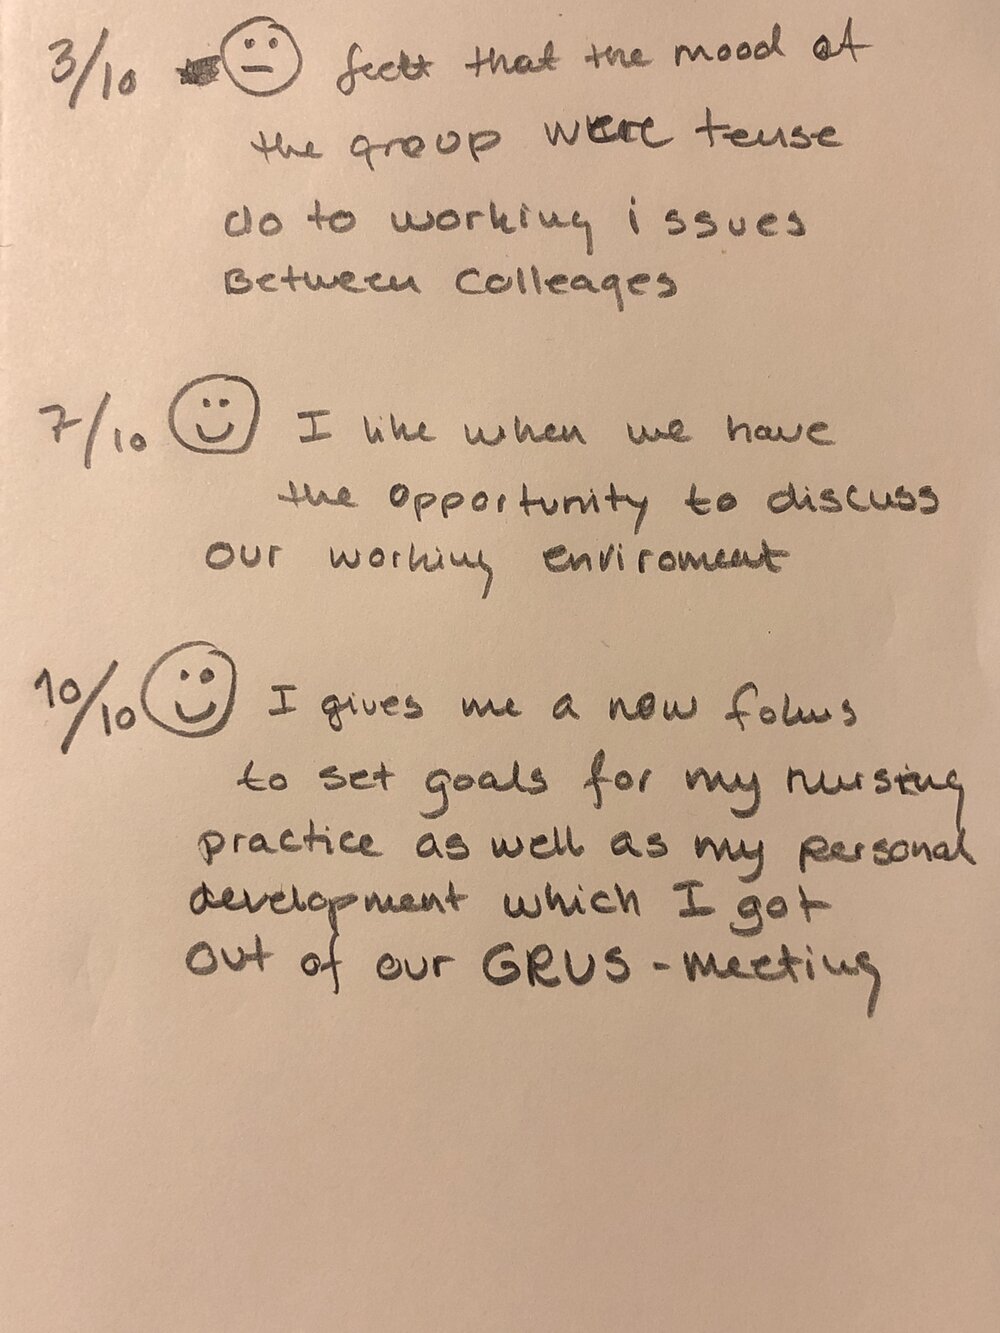 3/10 felt that the mood at
the group were tense
do to working issues
Between Colleages
7/10 I like when we have
the opportunity to discuss
our working enviroment
10/10 I gives me a new fokus
to set goals for my nursing
practice as well as my personal
development which I got
out of our GRUS-meeting